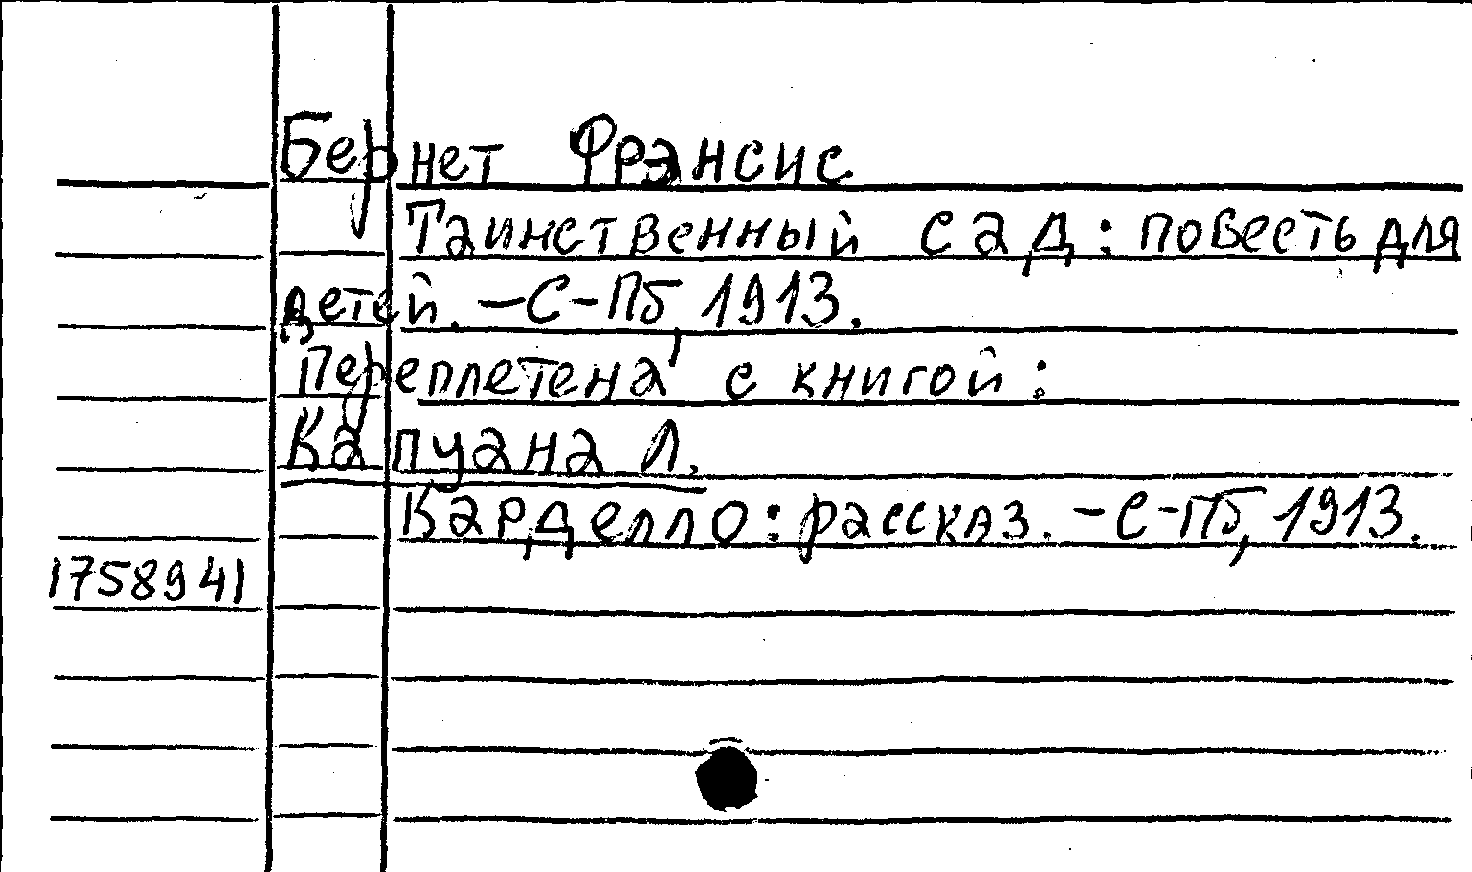 Бернет Фрэнсис
Таинственный сад: повесть для
детей. - С-Пб, 1913.
Переплетена с книгой:
Капуана Л.
Карделло: рассказ. - С-Пб, 1913.
1758941